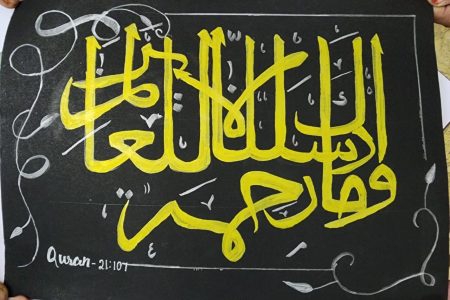 وما أرسلناك إلا رحمة للعالمين
Quran - 21:107